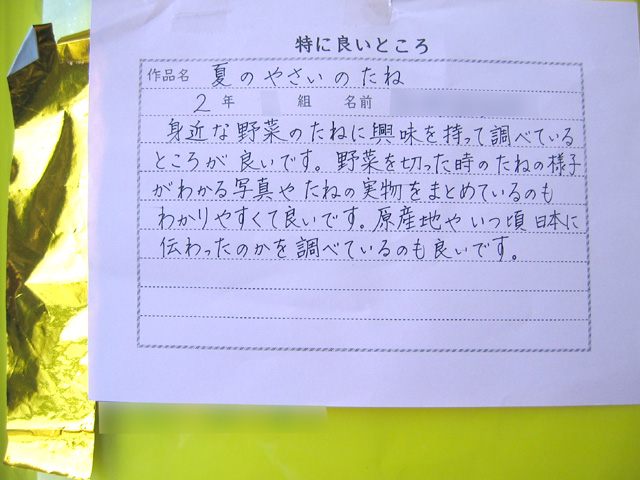 特に良いところ
作品名 夏のやさいのたね
2年 組 名前
身近な野菜のたねに興味を持って調べている
ところが良いです。野菜を切った時のたねの様子
がわかる写真やたねの実物をまとめているのも
わかりやすくて良いです。原産地やいつ頃日本に
伝わったのかを調べているのも良いです。